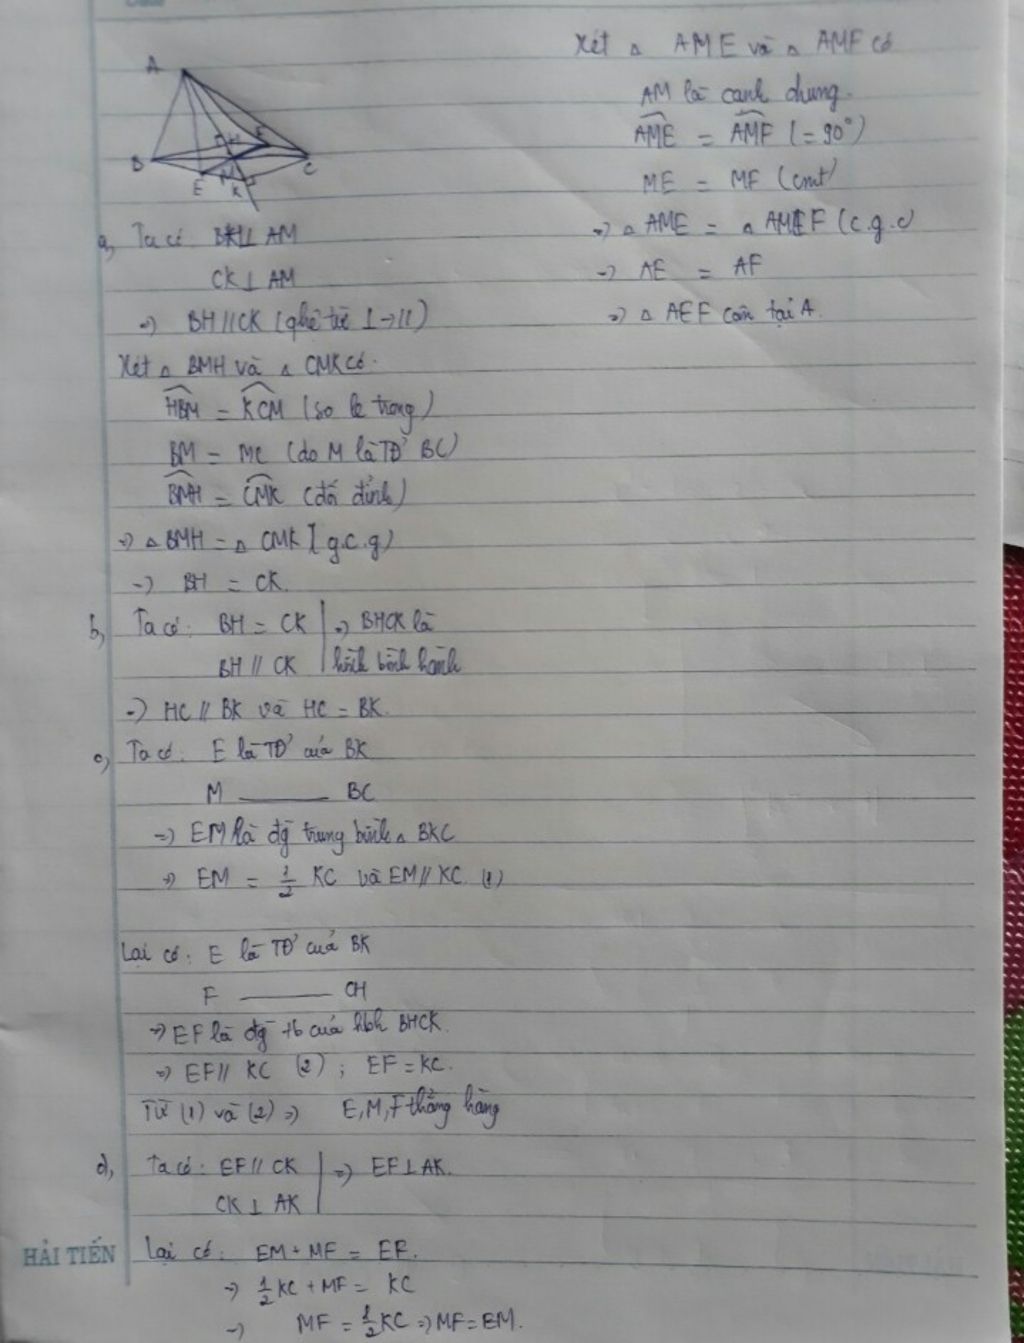 A
B
E
M
K
H
F
C
a, Ta có BH ⊥ AM
CK ⊥ AM
=> BH // CK (qhệ từ ⊥ → //)
Xét △ BMH và △ CMK có.
HBM = KCM (so le trong)
BM = MC (do M là TĐ' BC)
BMH = CMK (đối đỉnh)
=> △ BMH = △ CMK (g.c.g)
=> BH = CK.
b, Ta có: BH = CK | => BHCK là
BH // CK | hình bình hành
=> HC // BK và HC = BK.
c, Ta có: E là TĐ' của BK
M ——— BC
=> EM là đg trung bình △ BKC
=> EM = 1/2 KC và EM // KC. (1)
Lại có: E là TĐ' của BK
F ——— CH
=> EF là đg tb của hbh BHCK.
=> EF // KC (2) ; EF = KC.
Từ (1) và (2) => E, M, F thẳng hàng
d, Ta có: EF // CK | => EF ⊥ AK.
CK ⊥ AK
Lại có: EM + MF = EF.
=> 1/2 KC + MF = KC
=> MF = 1/2 KC => MF = EM.
HẢI TIẾN
Xét △ AME và △ AMF có
AM là cạnh chung.
AME = AMF (= 90°)
ME = MF (cmt)
=> △ AME = △ AMF (c.g.c)
=> AE = AF
=> △ AEF cân tại A.